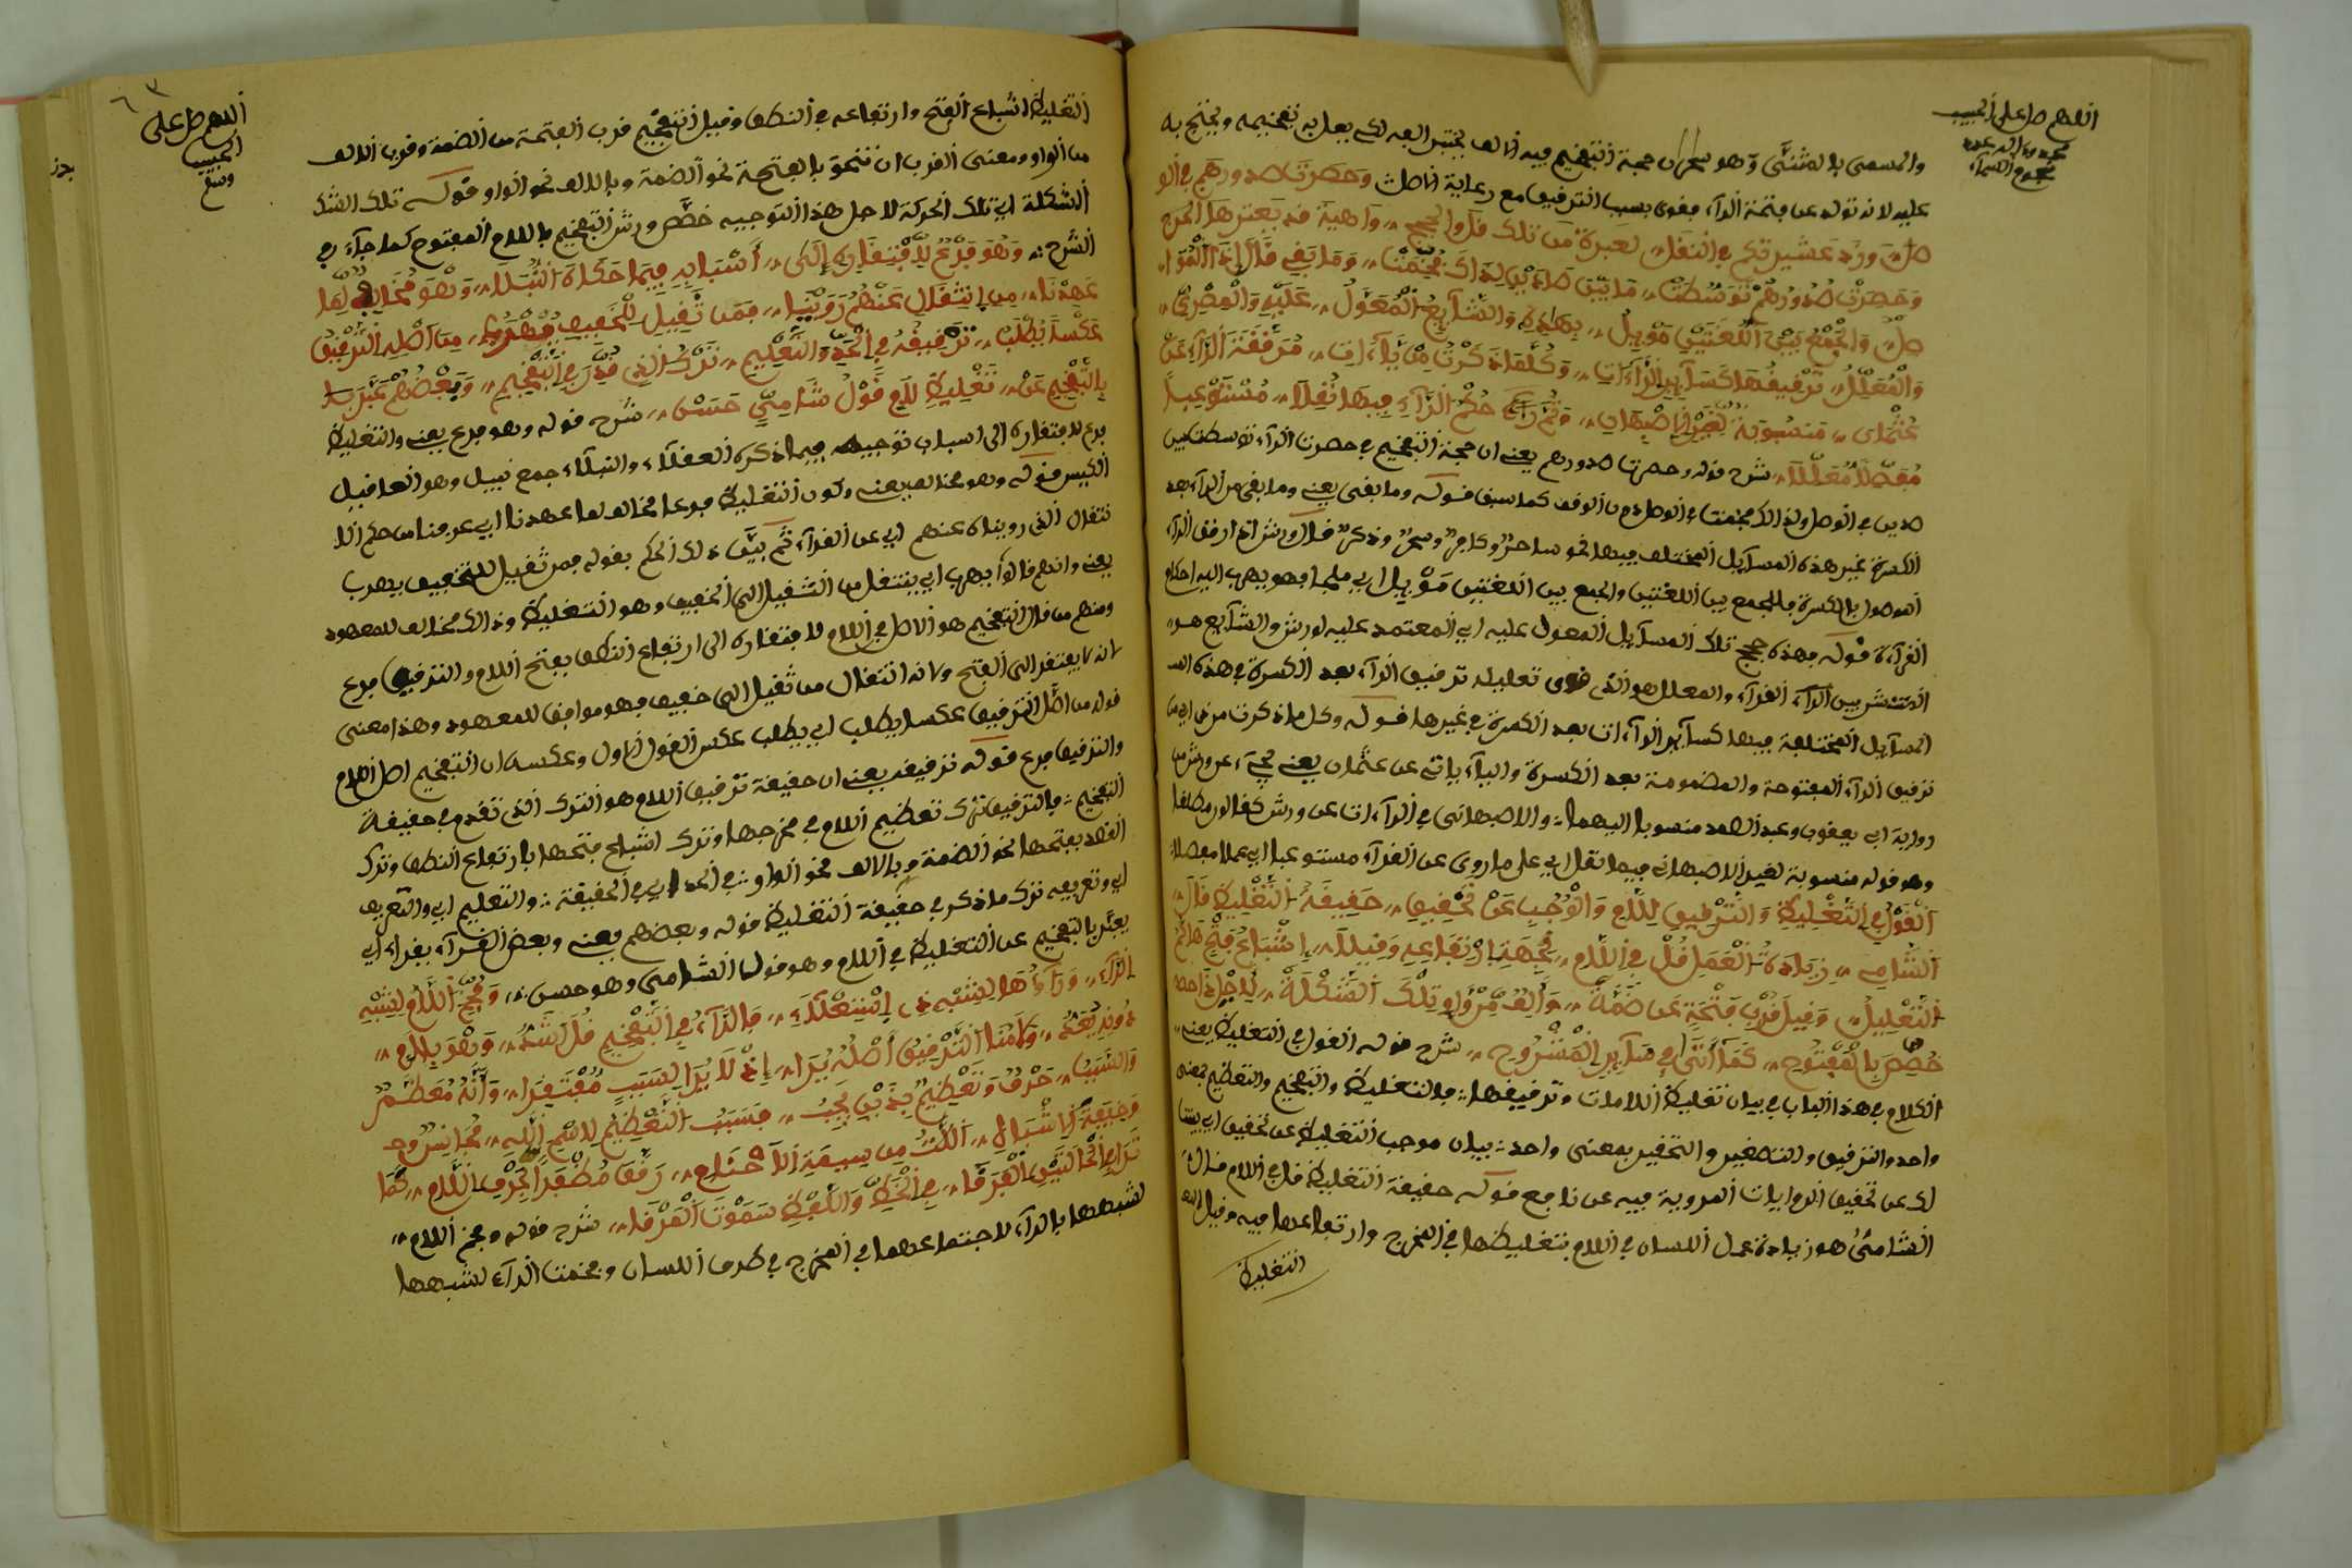 اللهم صل على الحبيب
محمد وءاله عدد
نجوم السماء
والمسمى بالمثنى وهو سحران حجة التفخيم فيه الالف يختبر الفه لكى يعل به تفخيمه ويحتج به
عليه لانه تولد عن فتحة الراء فقوى بسبب الترقيق مع رعاية الاصل وحصرت صدورهم في الو
صل ورد عشيرتكم في النقل لعبرة من تلك قالوا الحجج واهية قد يعترها العرج
وحصرت صدورهم توسطت ما بين صادين لذاك فخمت وما بقى قال إذا التقوا
صل والجمع بين اللغتين مؤيل بهذه والشايع المعول عليه والمصرى
والمعلل ترقيقها كساير الراءات وكلما ذكرت من ياءات مرققة الراء عن
عثمان منسوبة لغير الاصبهان وتم حكم الراء فيها نقلا مستوعبا
مفصلا معللا شرح قوله وحصرت صدورهم يعنى ان حجة التفخيم في حصرت الراء توسطت بين
صدين في الوصل ولذالك فخمت في الوصل دون الوقف كما سبق قوله وما بقى يعنى وما بقى من الراء بعد
الكسرة غير هذه المسايل المختلف فيها نحو ساحر وكافر وسحر وذكر قال ورش اذا رقق الراء
الموصول بالكسرة فالجمع بين اللغتين والجمع بين اللغتين مؤيل اي ملجا فهو يهرب اليه احكام
القراءة قوله بهذه حجج تلك المسايل المعول عليه اي المعتمد عليه لورش والشايع هو
المنتشر بين القراء والمعلل هو الذى قوى تعليله ترقيق الراء بعد الكسرة في هذه الم
المسايل المختلفة فيها كساير الراءات بعد الكسرة في غيرها قوله وكل ما ذكرت من اي من
ترقيق الراء المفتوحة والمضمومة بعد الكسرة والياء ياتي عن عثمان يعنى عن ورش من
رواية ابى يعقوب وعبد الصمد منسوبا اليهما والاصبهاني في الراءات عن ورش كقالون مطلقا
وهو قوله منسوبة لغير الاصبهاني فيها نقل اي على ما روى عن القراء مستوعبا اي كاملا مفصلا
القول في التغليظ والترقيق للام والموجب عن تحقيق حقيقة التغليظ قال
الشامى زيادة العمل قل في اللام في جهة ارتفاعه وقيلا إشباع فتح هاكم
التعليل وقيل قرب فتحة من ضمة والف من واو تلك الشكلة لاجل ذا
خصص بالمفتوح كما أتى في ساير المشروح شرح قوله القول في التغليظ يعنى
الكلام في هذا الباب في بيان تغليظ اللامات وترقيقها فالتغليظ والتفخيم والتعظيم بمعنى
واحد والترقيق والتصغير والتحقير بمعنى واحد بيان موجب التغليظ عن تحقيق اي بيا
ن عن تحقيق الروايات المروية فيه عن نافع قوله حقيقة التغليظ قل في اللام قال
الشامى هو زيادة عمل اللسان في اللام بتغليظها في المخرج وارتفاعها فيه وقيل
التغليظ
٦٣
اللهم صل على
الحبيب
وسلم
التغليظ اشباع الفتح وارتفاعه في النطق وقيل التفخيم قرب الفتحة من الضمة وقرب الالف
من الواو ومعنى القرب ان تنحو بالفتحة نحو الضمة وبالالف نحو الواو قوله تلك الشك
الشكلة اي تلك الحركة لاجل هذا التوجيه خص ورش التفخيم باللام المفتوح كما جاء في
الشرح وهو فرع لافتقاره إلى أسبابه فيما حكاه النبلا وهو مخالف لما
عهدنا من انتقال عنهم روينا فمن ثقيل للخفيف يهرب من أصله الترقيق
عكسا يطلب ترقيقه في الحد والتعليم ترك الذى قدم في التفخيم وبعضهم عبر
بالتفخيم عن تغليظ للام قول شامى حسن شرح قوله وهو فرع يعنى والتغليظ
فرع لافتقاره الى اسباب توجبه فيما ذكره العقلاء والنبلاء جمع نبيل وهو العاقيل
الكيس قوله وهو مخالف يعنى وكون التغليظ فرعا مخالف لما عهدنا اي عرفنا من حكم الا
نتقال الذى رويناه عنهم اي عن القراء ثم بين ذلك الحكم بقوله فمن ثقيل للخفيف يهرب
يعنى وانهم قالوا يهرب اي ينتقل من الثقيل الى الخفيف وهو التغليظ وذالك مخالف للمعهود
ومنهم من قال التفخيم هو الاصل في اللام لافتقاره الى ارتفاع النطق بفتح اللام والترقيق فرع
لانه لا يفتقر الى الفتح ولانه انتقال من ثقيل الى خفيف فهو موافق للمعهود وهذا معنى
قوله من اصل الترقيق عكسا يطلب اي يطلب عكس القول الاول وعكسه ان التفخيم اصل اللام
والترقيق فرع قوله ترقيقه يعنى ان حقيقة ترقيق اللام هو الترك الذى تقدم في حقيقة
التفخيم فالترقيق ترك تعظيم اللام في مخرجها وترك اشباع فتحها بارتفاع النطق وترك
القصد بفتحها نحو الضمة وبالالف نحو الواو في الحد اي في الحقيقة والتعليم اي والتعريف
اي وتعريفه ترك ما ذكر في حقيقة التغليظ قوله وبعضهم يعنى وبعض القراء يقراء اي
يعبر بالتفخيم عن التغليظ في اللام وهو قول الشامى وهو حسن وفخم اللام لشبه
الراء وراءها لشبه ذى استعلاء فالراء في التفخيم قل اشد وهو بلام
دونه يعد ولامنا الترقيق أصله يرا إذ لا يرا لسبب مفتقرا وأنه معظم
والسبب حرف وتعظيم بذين يجب فسبب التعظيم لاسم الله مجانس وح
وخيفة الاشباه اللات من سيفه الأحناع رققا مظفرا لحرف اللام كما
ترا في الحالتين الفرقا في الخط واللفظ سموت الفرقدا شرح قوله وفخم اللام
لشبهها بالراء لاجتماعهما في المخرج في طرف اللسان وفخمت الراء لشبهها